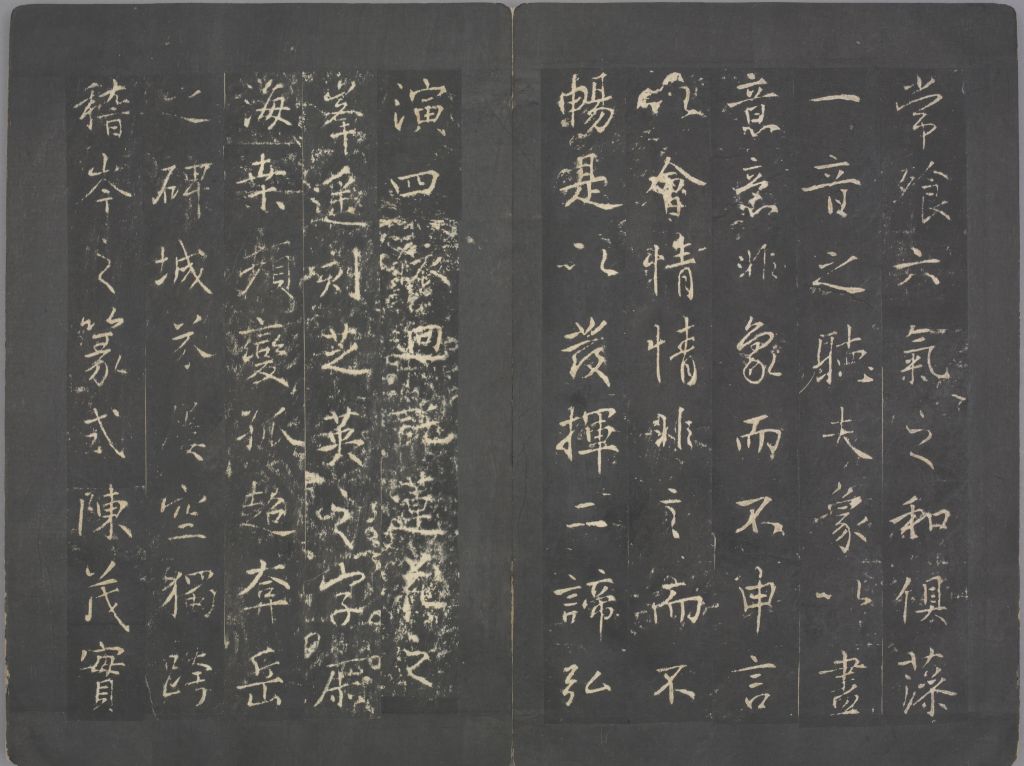 常飡六氣之和俱藻
一音之聽夫象以盡
意意非象而不申言
以會情情非言而不
暢是以發揮二諦弘
演四迴託蓮花之
峯遥刻芝英之字
海桒頻變孤超夲岳
之碑城芥空獨跨
稽岑之篆式陳茂實